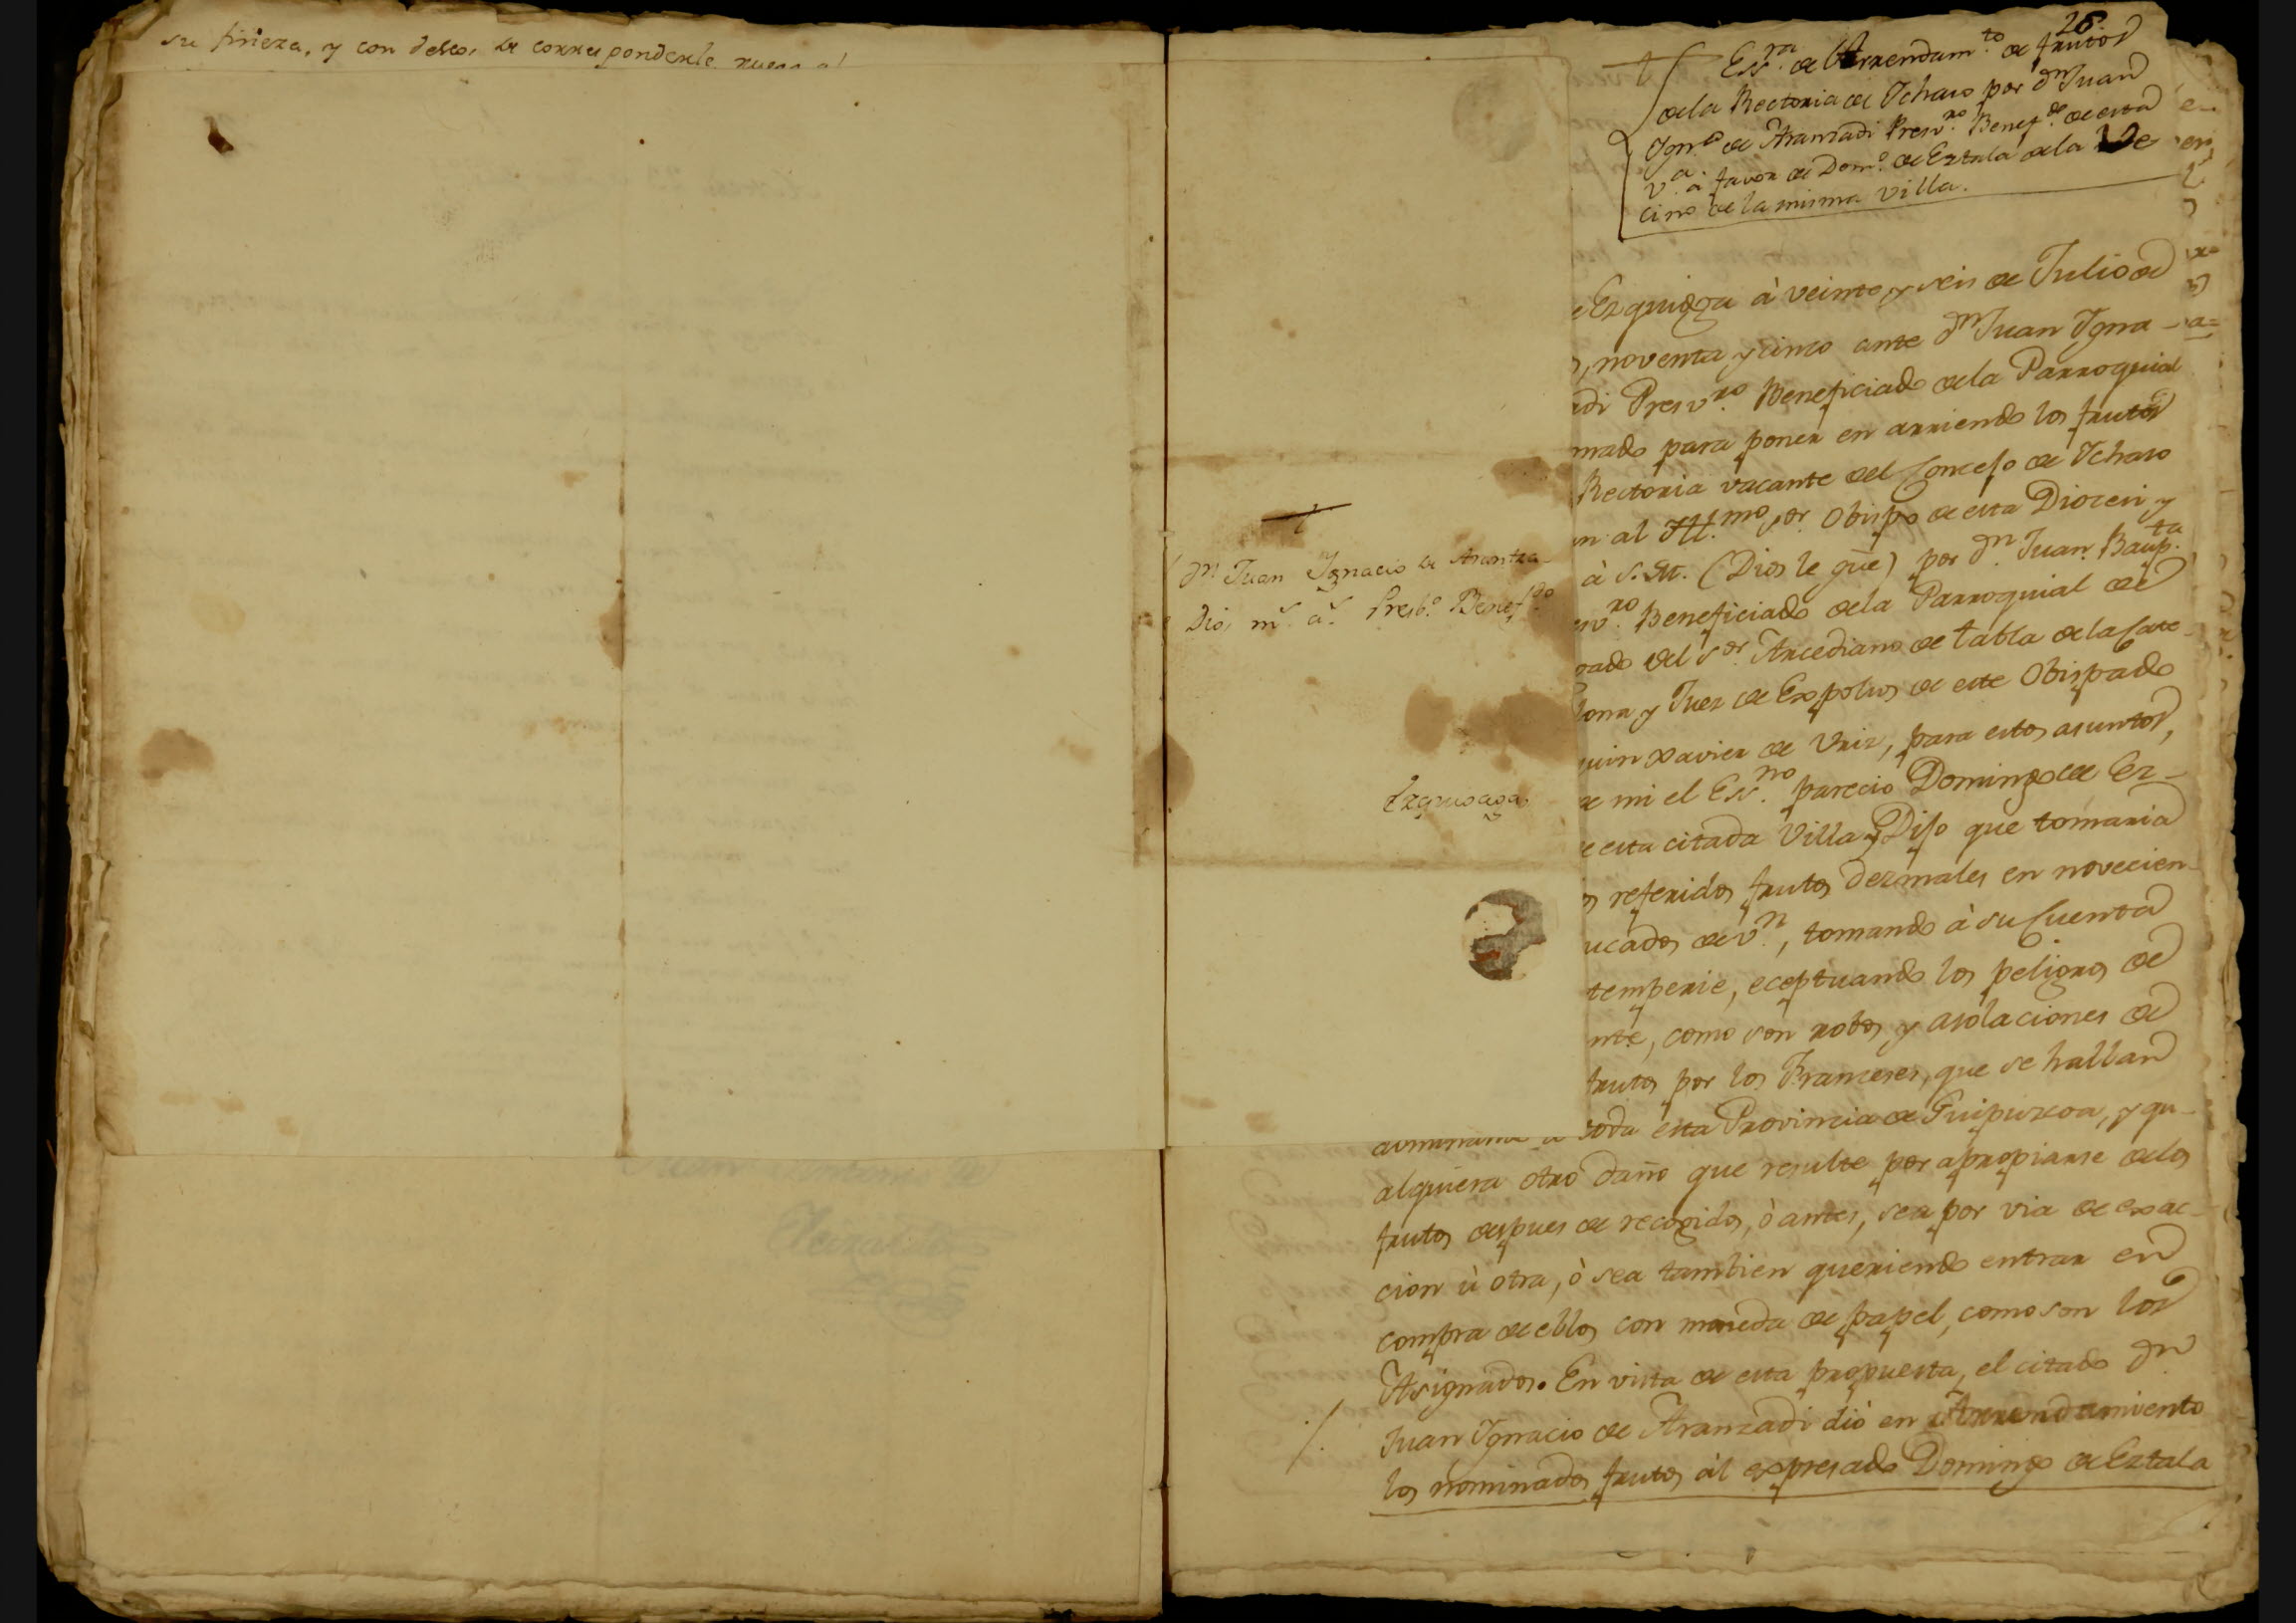 su fineza, y con deseos de corresponderle
Dn. Juan Ignacio de Arantza
Dios ms. as. Presb.o Benefdo
Ezquioaga
26.
Essra. de Arrendamto. de frutos
de la Rectoria de Ichaso por Dn Juan
Ign.o de Aranzadi Presvro. Benefdo. de esta
Va. à favor de Domo. de Eztala de la Ve
cino de la misma villa.
Ezquioga à veinte y seis de Julio de
noventa y cinco ante Dn Juan Igna-
adi Presvro. Beneficiado de la Parroquial
mado para poner en arriendo los frutos
Rectoria vacante del Concejo de Ichaso
n al Illmo. Sor. Obispo de esta Diocesi y
à S.M. (Dios le gue) por Dn. Juan Baupta.
svro. Beneficiado de la Parroquial de
gado del Sor. Arcediano de tabla de la Cate-
lona y Juez de Expolios de este Obispado
quin Xavier de Uriz, para estos asuntos,
e mi el Essno. parecio Domingo de Ez-
e esta citada Villa y Dijo que tomaria
s referidos frutos dezmales en novecien-
ucados de vn., tomando à su Cuenta
temperie, eceptuando los peligros de
nte, como son robos, y asolaciones de
frutos por los Franceses, que se hallan
toda esta Provincia de Guipuzcoa, y qu-
alquiera otro daño que resulte por apropiarse de los
frutos despues de recogidos, ò antes, sea por via de exac-
cion ù otra, ò sea tambien queriendo entrar en
compra de ellos con moneda de papel, como son los
Asignados. En vista de esta propuesta, el citado Dn
Juan Ignacio de Aranzadi diò en Arrendamiento
los nominados frutos àl expresado Domingo de Eztala